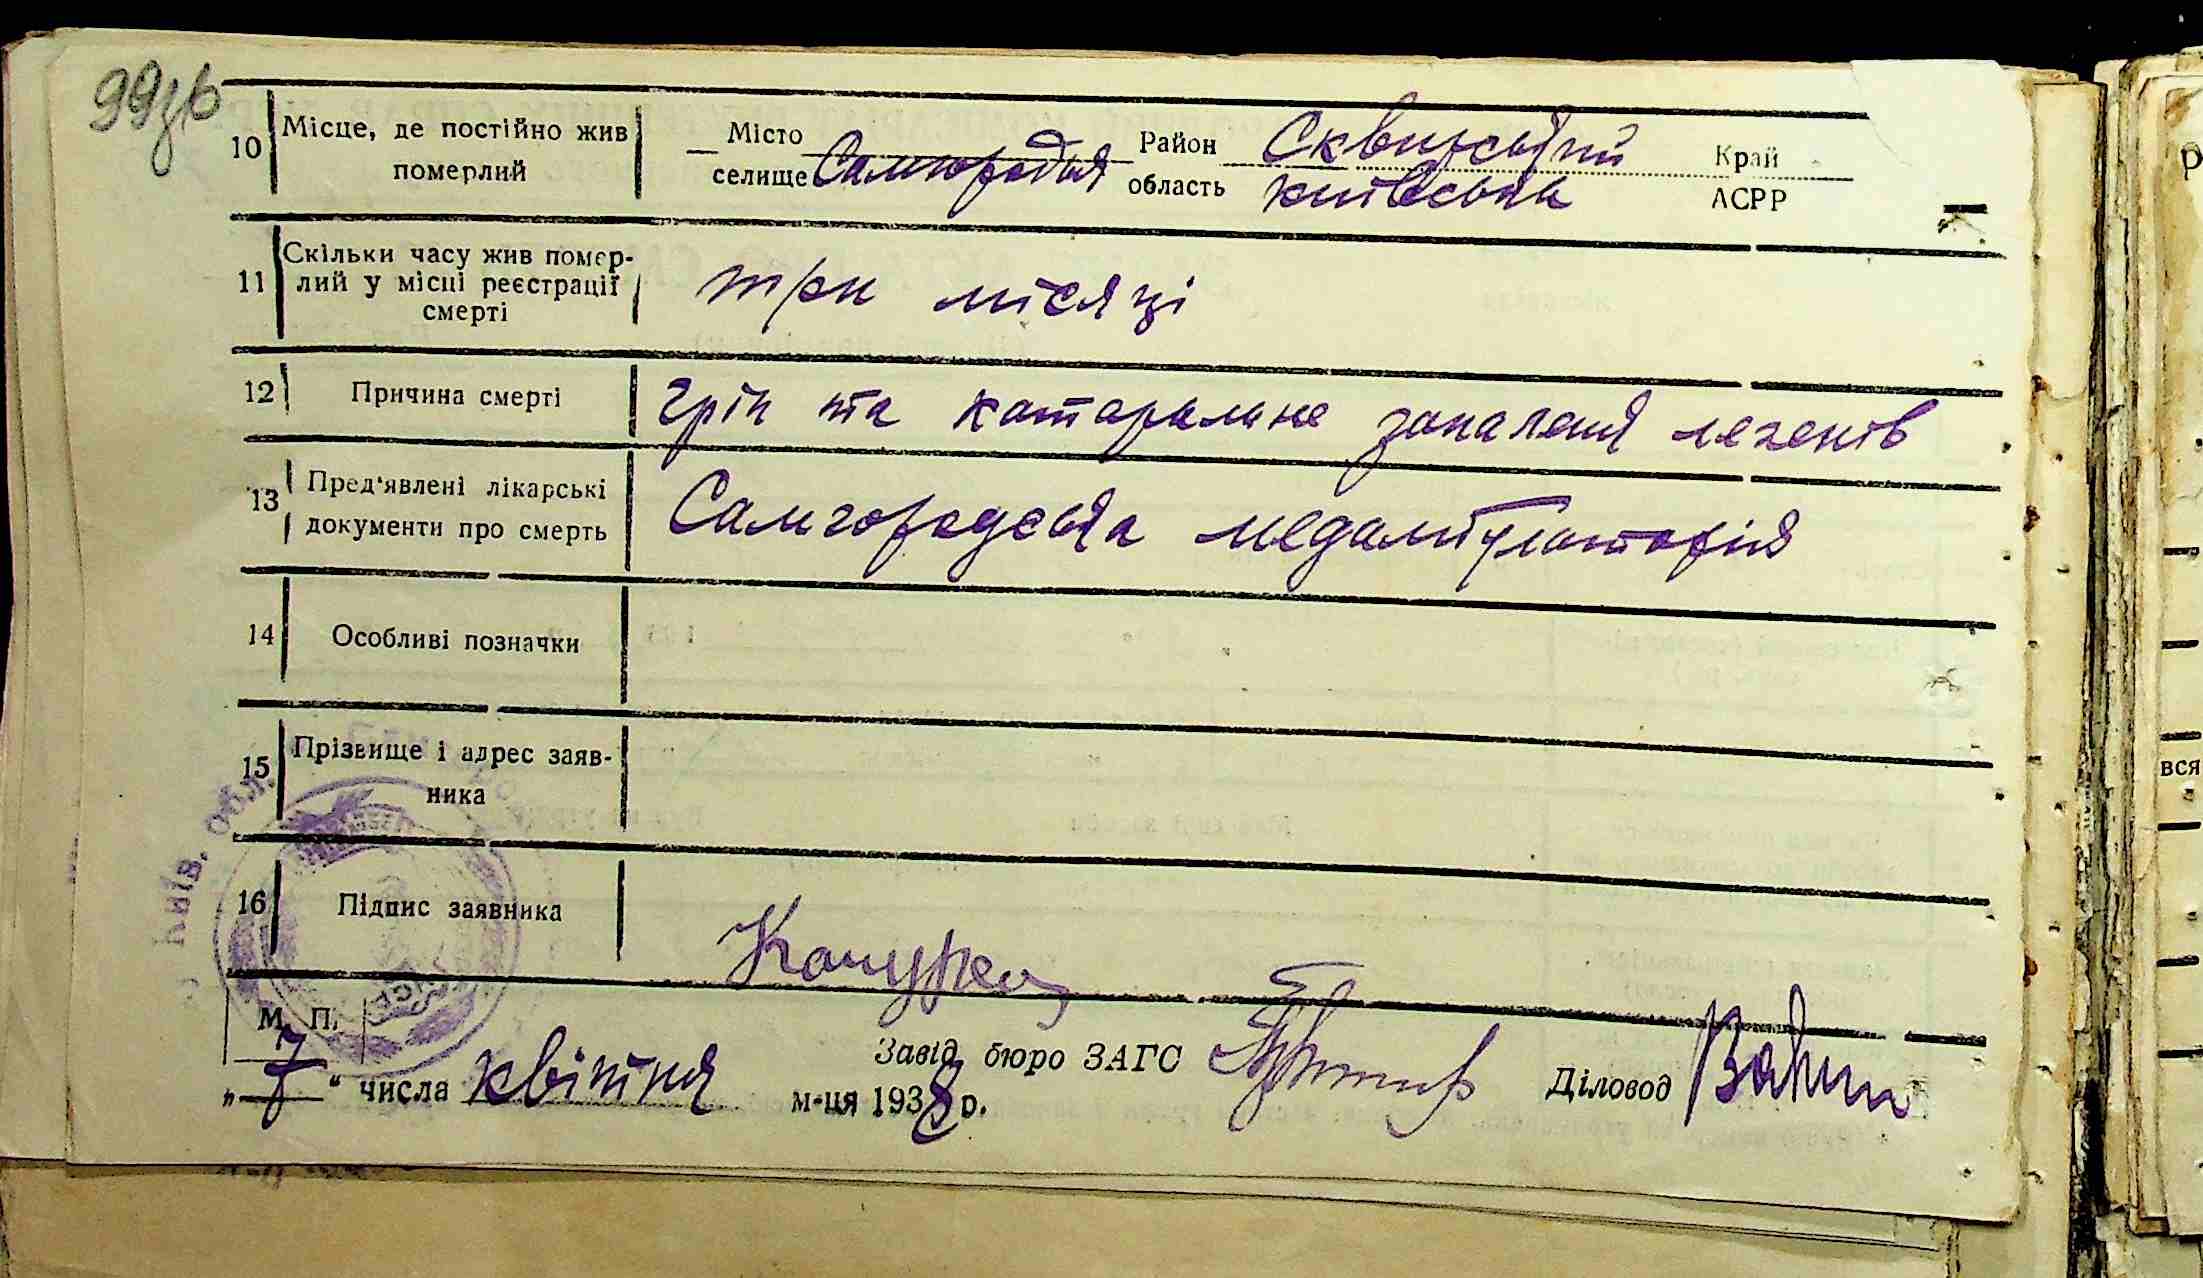 99зв
10 Місце, де постійно жив померлий
Місто селище Самгородок Район Сквирський область Київська Край АСРР
11 Скільки часу жив помер-
лий у місці реєстрації
смерті
три місяці
12 Причина смерті
гріп та катаральне запаленя легенів
13 Пред'явлені лікарські
документи про смерть
Самгородська медамбулаторія
14 Особливі позначки
15 Прізвище і адрес заяв-
ника
Київ. обл.
16 Підпис заявника
М. П.
Завід. бюро ЗАГС
Діловод
„7" числа квітня м-ця 1938 р.
вся